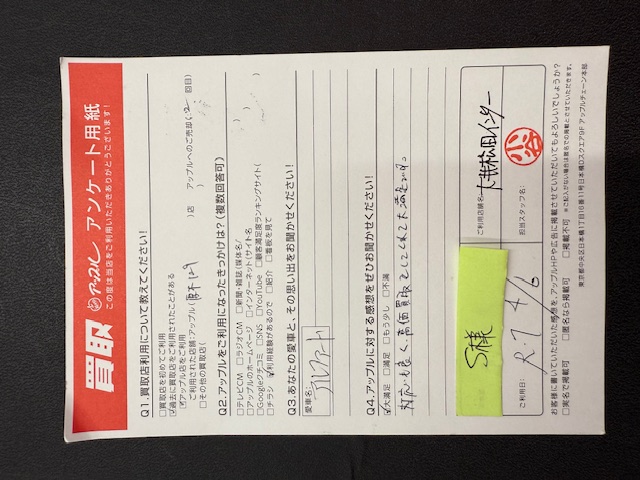 買取 アップル アンケート用紙
この度は当店をご利用いただきありがとうございます!
Q1.買取店利用について教えてください!
□買取店を初めてご利用
☑過去に買取店をご利用されたことがある
☑アップル店をご利用
ご利用された店舗:アップル( )店 アップルへのご売却(2 回目)
□その他の買取店( )
Q2.アップルをご利用になったきっかけは?(複数回答可)
□テレビCM □ラジオCM □新聞・雑誌(媒体名/ )
□アップルのホームページ □インターネット(サイト名 )
□Googleクチコミ □SNS □YouTube □顧客満足度ランキングサイト( )
□チラシ ☑利用経験があるので □紹介 □看板を見て
Q3.あなたの愛車と、その思い出をお聞かせください!
愛車名: アルファード
Q4.アップルに対する感想をぜひお聞かせください!
☑大満足 □満足 □もう少し □不満
対応も良く、高価買取をしてくれて大満足です。
S様
ご利用店舗名:
担当スタッフ名:
ご利用日: R.7 4/6
お客様に書いていただいた感想を、アップルHPや広告に掲載させていただいてもよろしいでしょうか?
□実名で掲載可 □匿名なら掲載可 □掲載不可 ※ご記入がない場合は匿名での掲載とさせていただきます。
東京都中央区日本橋1丁目16番11号日本橋Dスクエア9F アップルチェーン本部